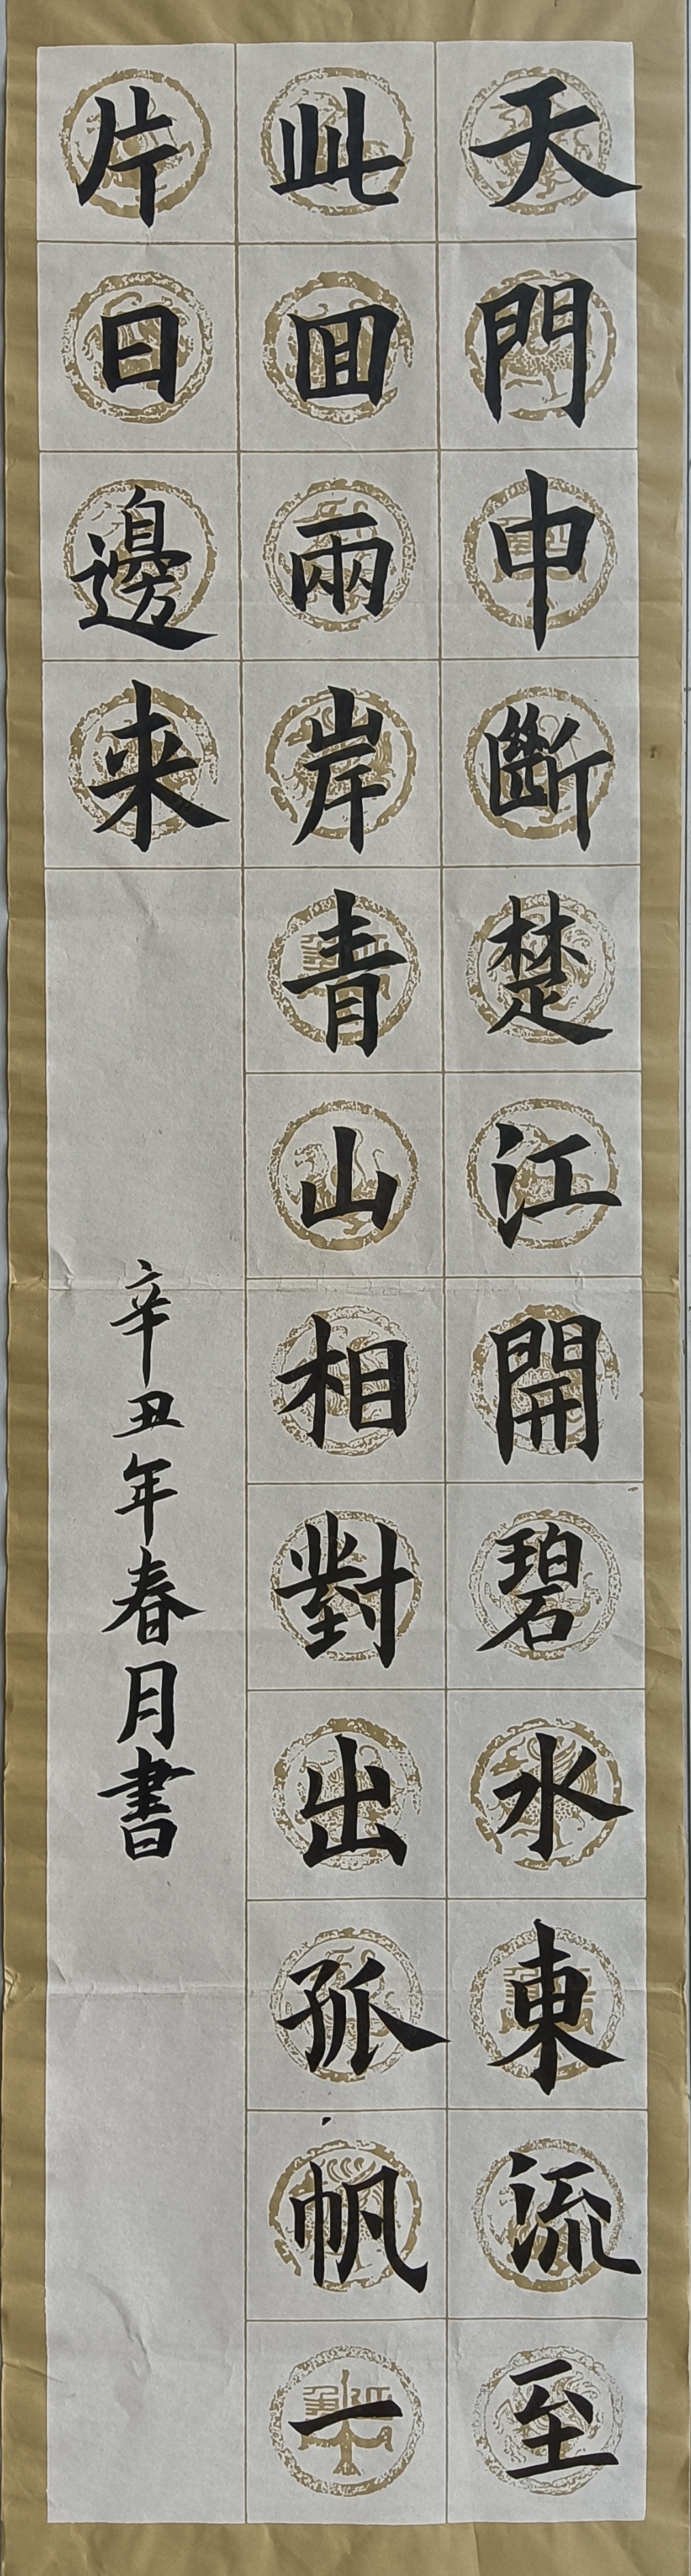 天門中斷楚江開碧水東流至
此回兩岸青山相對出孤帆一
片日邊来
辛丑年春月書